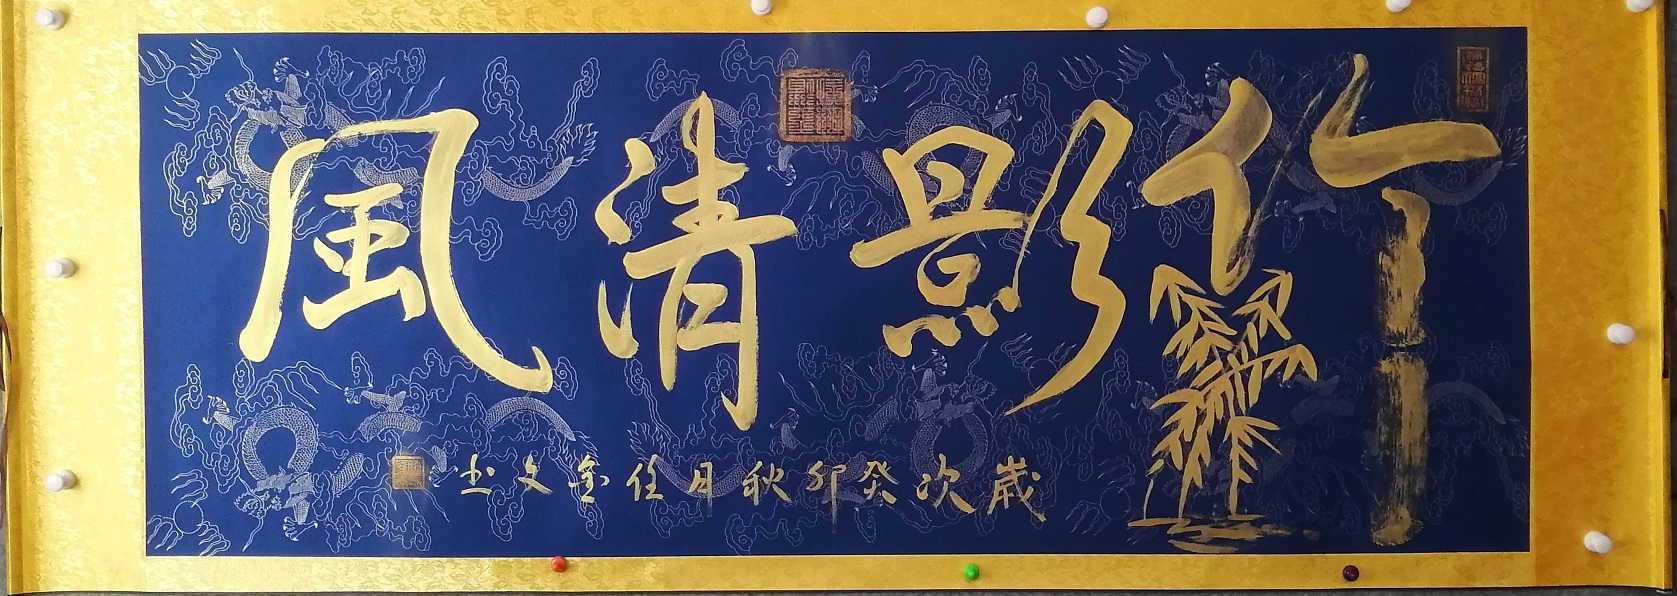 竹影清風
歲次癸卯秋月任金文书